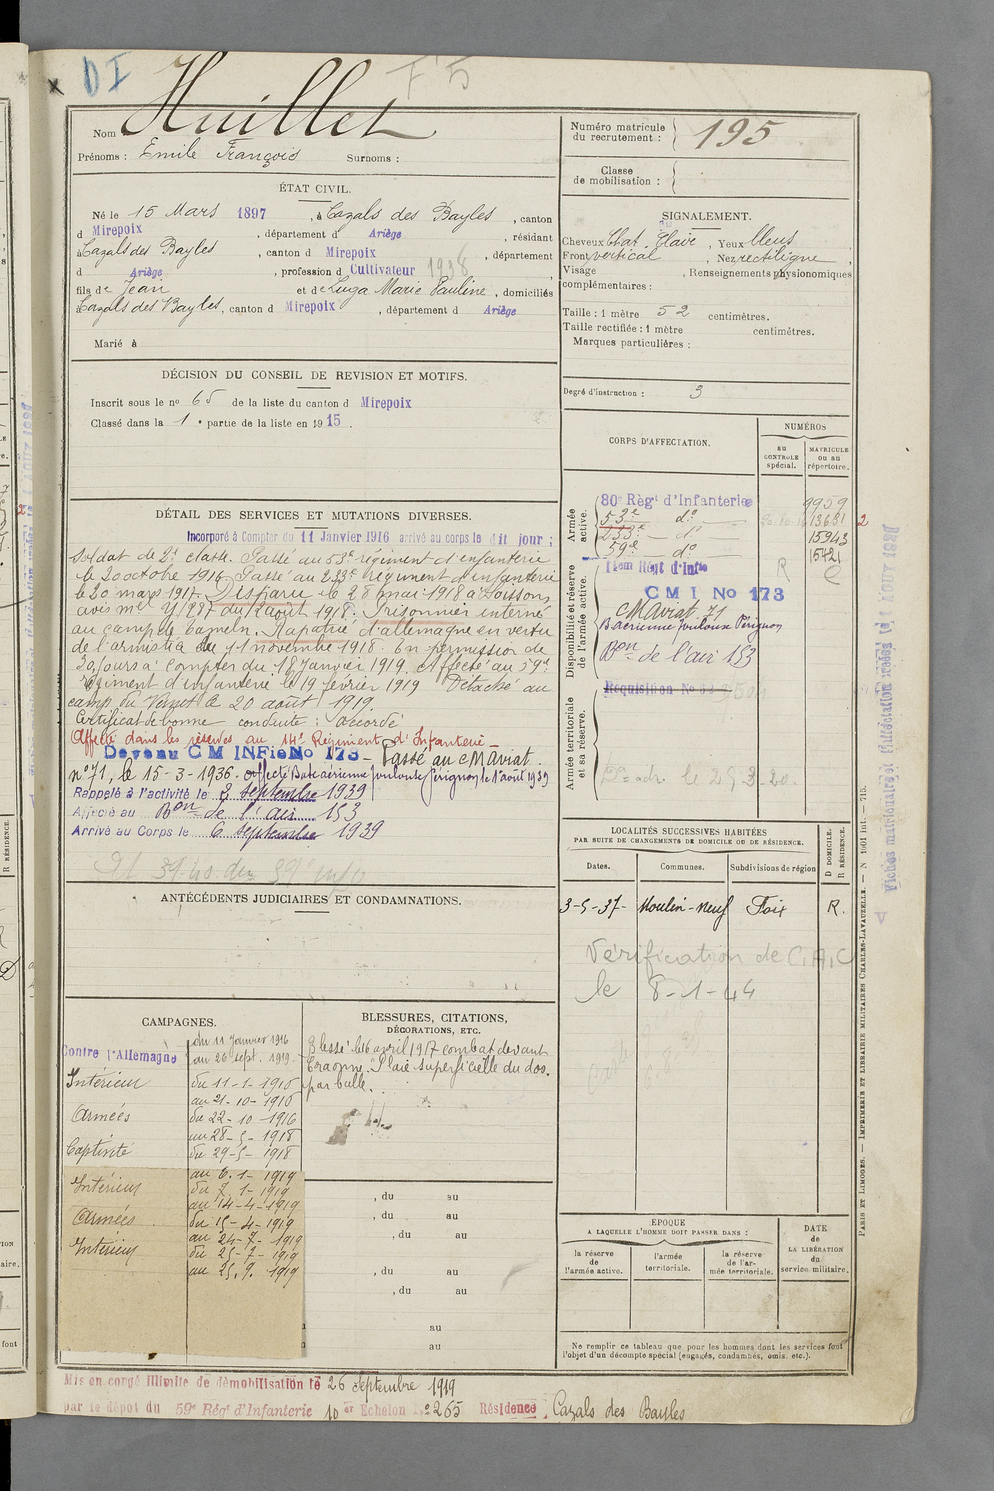 DI
F 5
Nom Huillet
Prénoms : Emile François Surnoms :
Numéro matricule du recrutement : 195
Classe de mobilisation :
ÉTAT CIVIL.
Né le 15 Mars 1897, à Cazals des Bayles, canton
d Mirepoix, département d Ariège, résidant
à Cazals des Bayles, canton d Mirepoix, département
d Ariège, profession d Cultivateur 1938
fils de Jean et de Luga Marie Pauline, domiciliés
à Cazals des Bayles, canton d Mirepoix, département d Ariège
Marié à
SIGNALEMENT.
Cheveux Chat. Clair, Yeux bleus
Front vertical, Nez rectiligne,
Visage , Renseignements physionomiques
complémentaires :
Taille : 1 mètre 52 centimètres.
Taille rectifiée : 1 mètre centimètres.
Marques particulières :
Degré d'instruction : 3
DÉCISION DU CONSEIL DE REVISION ET MOTIFS.
Inscrit sous le no 65 de la liste du canton d Mirepoix
Classé dans la 1 e partie de la liste en 1915.
DÉTAIL DES SERVICES ET MUTATIONS DIVERSES.
Incorporé à Compter du 11 Janvier 1916 arrivé au corps le dit jour ;
Soldat de 2e classe. Passé au 53e régiment d'infanterie
le 20 octobre 1916. Passé au 233e Régiment d'infanterie
le 20 mars 1917. Disparu le 28 mai 1918 à Soissons
avis ml Y/287 du 12 août 1918. Prisonnier interné
au camp de Cameln. Rapatrié d'allemagne en vertu
de l'armistice du 11 novembre 1918. En permission de
30 jours à compter du 18 Janvier 1919. Affecté au 59e
Régiment d'infanterie le 19 février 1919 Détaché au
camp du Vernet le 20 août 1919.
Certificat de bonne conduite : accordé
Affecté dans les réserves au 14e Régiment d'Infanterie –
Devenu C M INFie No 173 – Passé au CM Aviat.
n° 71, le 15-3-1936. affecté Base aérienne Toulouse Pérignon le 1er août 1939
Rappelé à l'activité le 3 septembre 1939
Affecté au Bon de l'air 153
Arrivé au Corps le 6 septembre 1939
CORPS D'AFFECTATION.
NUMÉROS
au CONTROLE spécial.
MATRICULE ou au répertoire.
Armée active.
80e Régt d'Infanterie 9959
53e do 13681 2
233e — do 15943
59e — do 1542
Disponibilité et réserve de l'armée active.
14em Régt d'Infie R
C M I No 173
CM Aviat. 71
B. aérienne Toulouse Pérignon
Bon de l'air 153
Armée territoriale et sa réserve.
LOCALITÉS SUCCESSIVES HABITÉES
PAR SUITE DE CHANGEMENTS DE DOMICILE OU DE RÉSIDENCE.
Dates. Communes. Subdivisions de région D DOMICILE. R RÉSIDENCE.
3-5-37- Moulin-Neuf Foix R.
Vérification de C.A.C
le 8-1-44
ANTÉCÉDENTS JUDICIAIRES ET CONDAMNATIONS.
CAMPAGNES.
Contre l'Allemagne du 11 Janvier 1916
au 26 sept. 1919.
Intérieur du 11-1-1916
au 21-10-1916
Armées du 22-10-1916
au 28-5-1918
Captivité du 29-5-1918
au 6.1-1919
Intérieur du 7.1-1919
au 14-4-1919
Armées du 15-4-1919
au 24-7-1919
Intérieur du 25-7-1919
au 25.9.1919
BLESSURES, CITATIONS,
DÉCORATIONS, ETC.
Blessé le 16 avril 1917 combat devant
Craonne. Plaie superficielle du dos.
par balle.
, du au
, du au
, du au
, du au
, du au
au
au
EPOQUE
A LAQUELLE L'HOMME DOIT PASSER DANS :
la réserve de l'armée active.
l'armée territoriale.
la réserve de l'armée territoriale.
DATE de LA LIBÉRATION du service militaire.
Ne remplir ce tableau que pour les hommes dont les services font
l'objet d'un décompte spécial (engagés, condamnés, omis, etc.).
Mis en congé illimité de démobilisation le 26 septembre 1919
par le dépôt du 59e Régt d'Infanterie 10er Echelon No 265 Résidence Cazals des Bayles
PARIS ET LIMOGES. — IMPRIMERIE ET LIBRAIRIE MILITAIRES CHARLES-LAVAUZELLE. — N 1001 int. — 715.